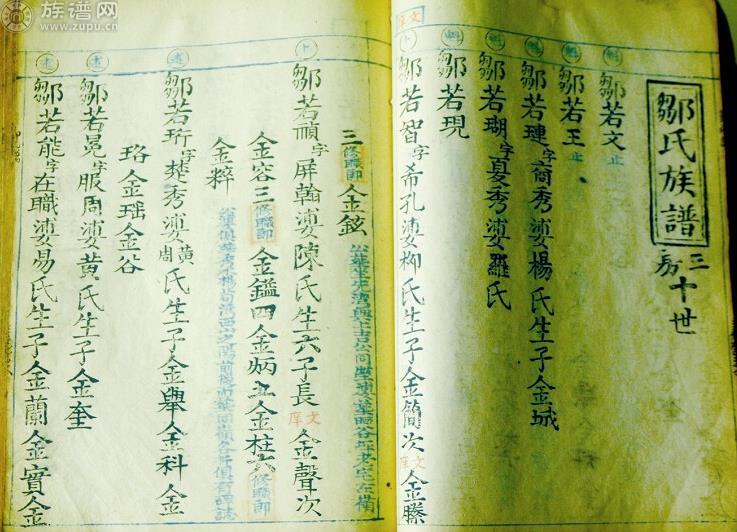 族谱网
www.zupu.cn
鄒氏族譜
三房十世
鄒若文 止
鄒若王 止
鄒若璉字裔秀娶楊氏生子金城
鄒若瑚字夏秀娶羅氏
鄒若現
文庠
鄒若智字希孔娶柳氏生子金簡次文庠金滕
三修職郎金鉉
鄒若頎字屏翰娶陳氏生六子長文庠金聲次
金容三修職郎金鎰四金炳五金柱六修職郎
金粹
鄒若珩字楚秀娶黃周氏生子金舉金科金
珞金瑶金谷
鄒若冕字服周娶黃氏生子金奎
鄒若能字在職娶易氏生子金蘭金實金